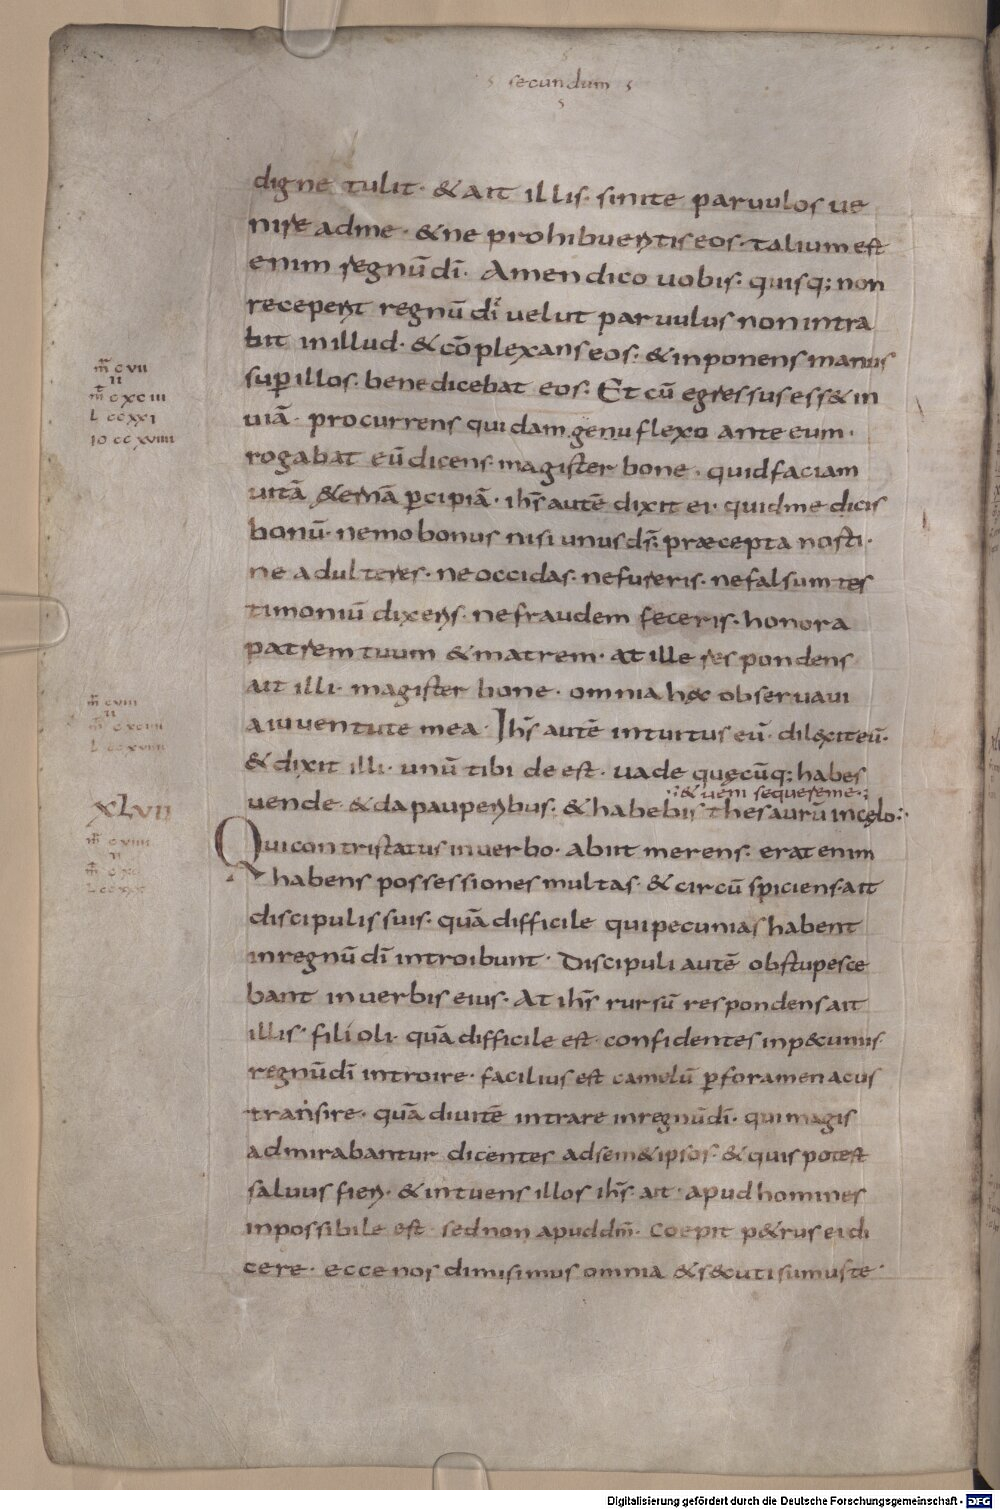 secundum
digne tulit · & ait illis · sinite paruulos ue
nire adme · & ne prohibueritis eos · talium est
enim regnū dī · Amen dico uobis · quisq; non
receperit regnū dī uelut paruulus non intra
bit in illud · & cōplexans eos · & inponens manus
suꝑ illos · benedicebat eos · Et cū egressus ess& in
uiā · procurrens quidam genu flexo ante eum ·
rogabat eū dicens · magister bone · quid faciam
uitā &ernā ꝑcipiā · ihs̄ autē dixit ei · quid me dicis
bonū · nemo bonus nisi unus ds̄ · præcepta nosti ·
ne adulteres · ne occidas · ne fureris · ne falsum tes
timoniū dixeris · ne fraudem feceris · honora
patrem tuum & matrem · at ille respondens
ait illi · magister bone · omnia hęc obseruaui
a iuuentute mea · Ihs̄ autē intuitus eū · dilexit eū ·
& dixit illi · unū tibi deest · uade quęcūq; habes
& ueni sequere me
uende · & da pauperibus · & habebis thesaurū in cęlo
Qui contristatus in uerbo · abiit merens · erat enim
habens possessiones multas · & circū spiciens · ait
discipulis suis · quā difficile qui pecunias habent
in regnū dī introibunt · Discipuli autē obstupesce
bant in uerbis eius · At ihs̄ rursū respondens ait
illis · filioli · quā difficile est confidentes in p&cuniis
regnū dī introire · facilius est camelū ꝑ foramen acus
transire · quā diuitē intrare in regnū dī · qui magis
admirabantur dicentes ad sem&ipsos · & quis potest
saluus fieri · & intuens illos ihs̄ ait · apud homines
inpossibile est · sed non apud dm̄ · Coepit p&rus ei di
cere · ecce nos dimisimus omnia & s&cuti sumus te
m̄ cvii
ii
m̄ cxciii
L ccxxi
io ccxviiii
m̄ cviii
ii
XLvii
m̄ cviiii
ii
Digitalisierung gefördert durch die Deutsche Forschungsgemeinschaft - DFG